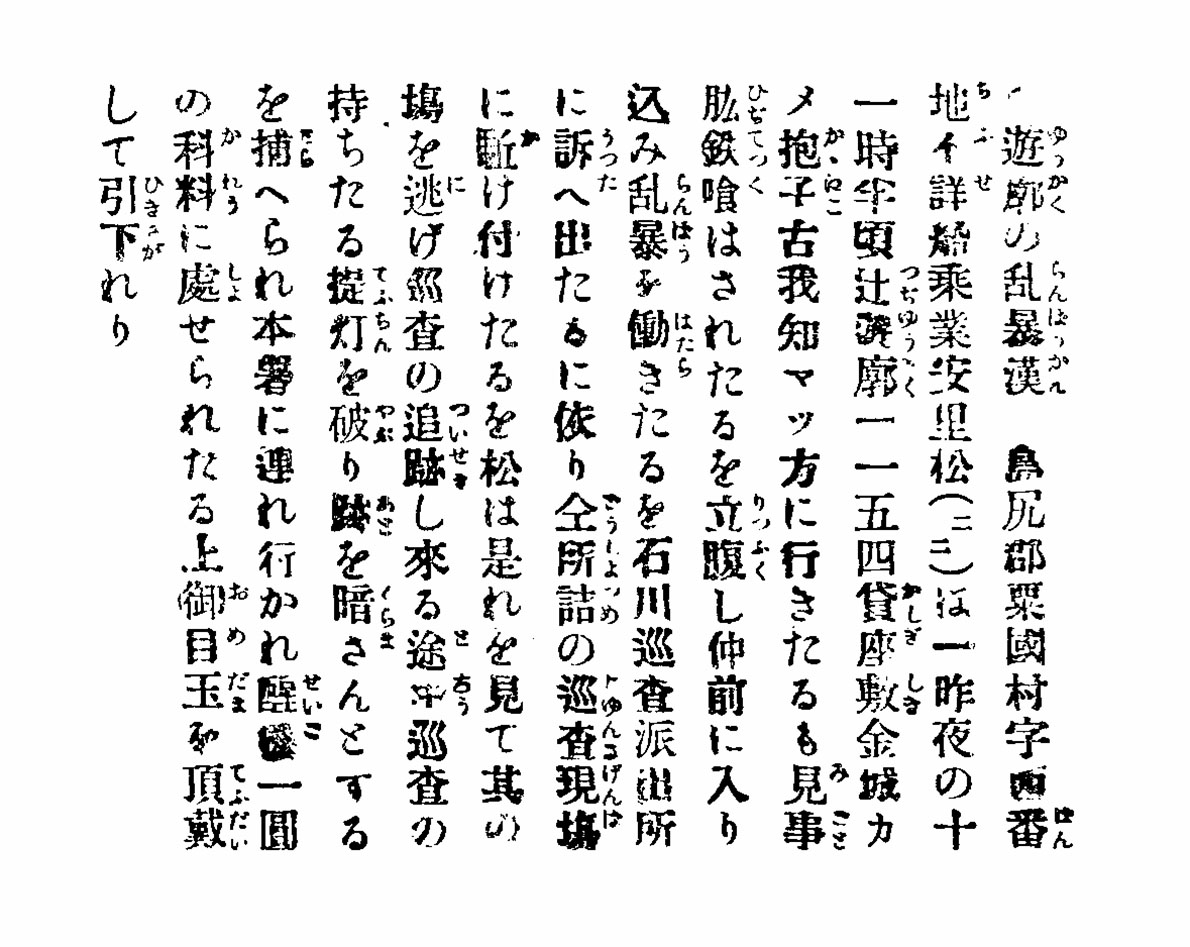 遊廓の乱暴漢　島尻郡粟國村字西番
地不詳船乘業安里松(二三)は一昨夜の十
一時半頃辻遊廓一一五四貸座敷金城カ
メ抱子古我知マツ方に行きたるも見事
肱鉄喰はされたるを立腹し仲前に入り
込み乱暴を働きたるを石川巡査派出所
に訴へ出たるに依り仝所詰の巡査現塲
に駈け付けたるを松は是れを見て其の
塲を逃げ巡査の追跡し來る途中巡査の
持ちたる提灯を破り跡を暗さんとする
を捕へられ本署に連れ行かれ醒後一圓
の科料に處せられたる上御目玉を頂戴
して引下れり